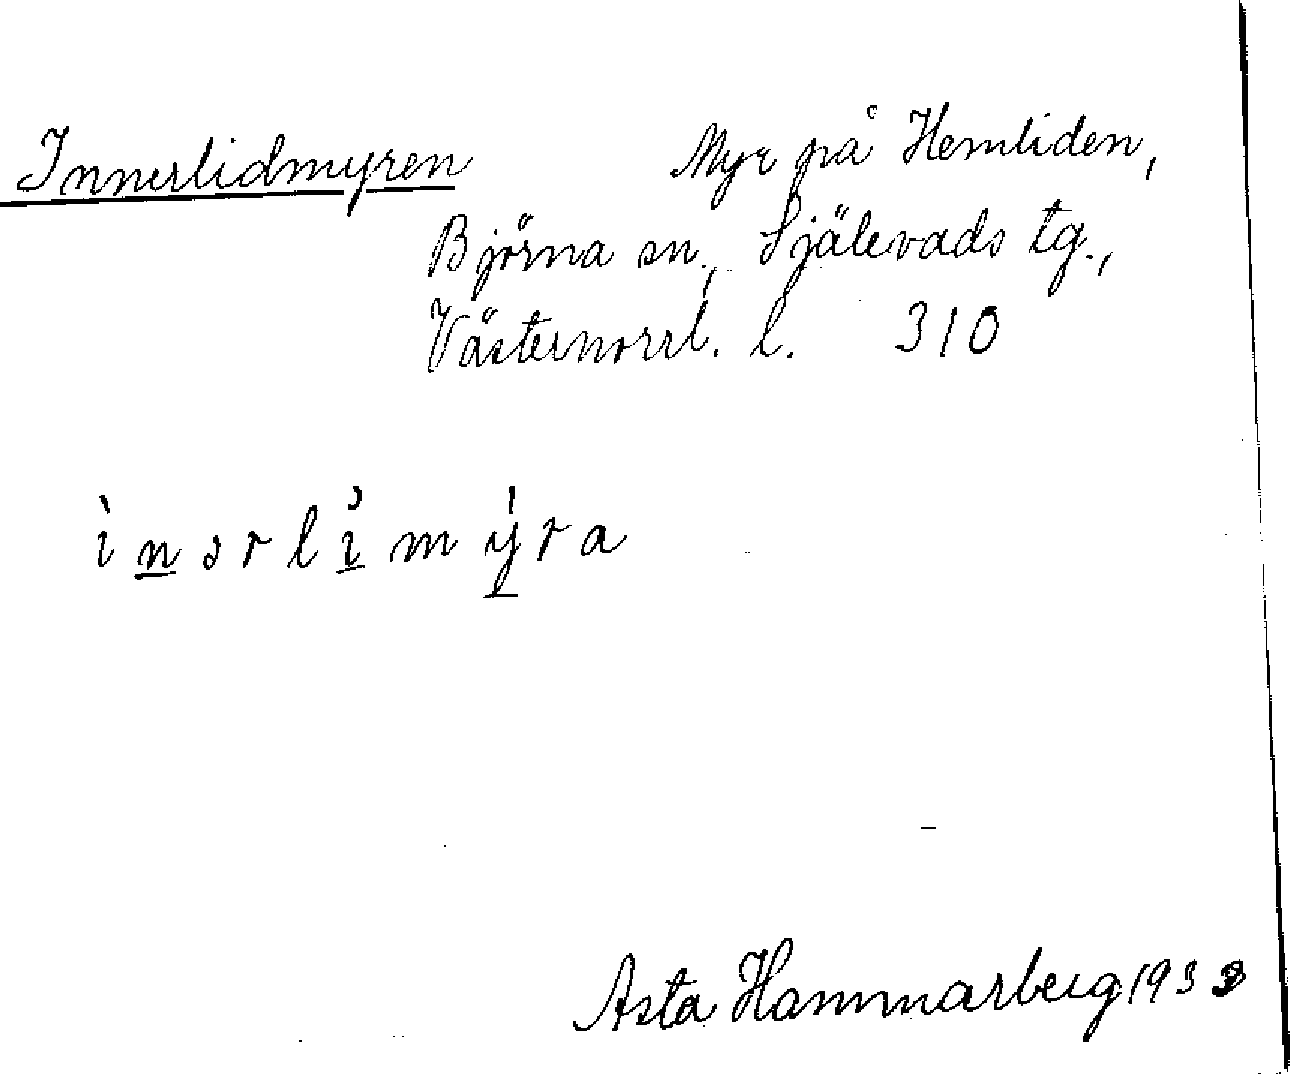 Innerlidmyren Myr på Hemliden,
Björna sn., Själevads tg.,
Västernorrl. l. 310
ìnərlìmýra
Asta Hammarberg 193